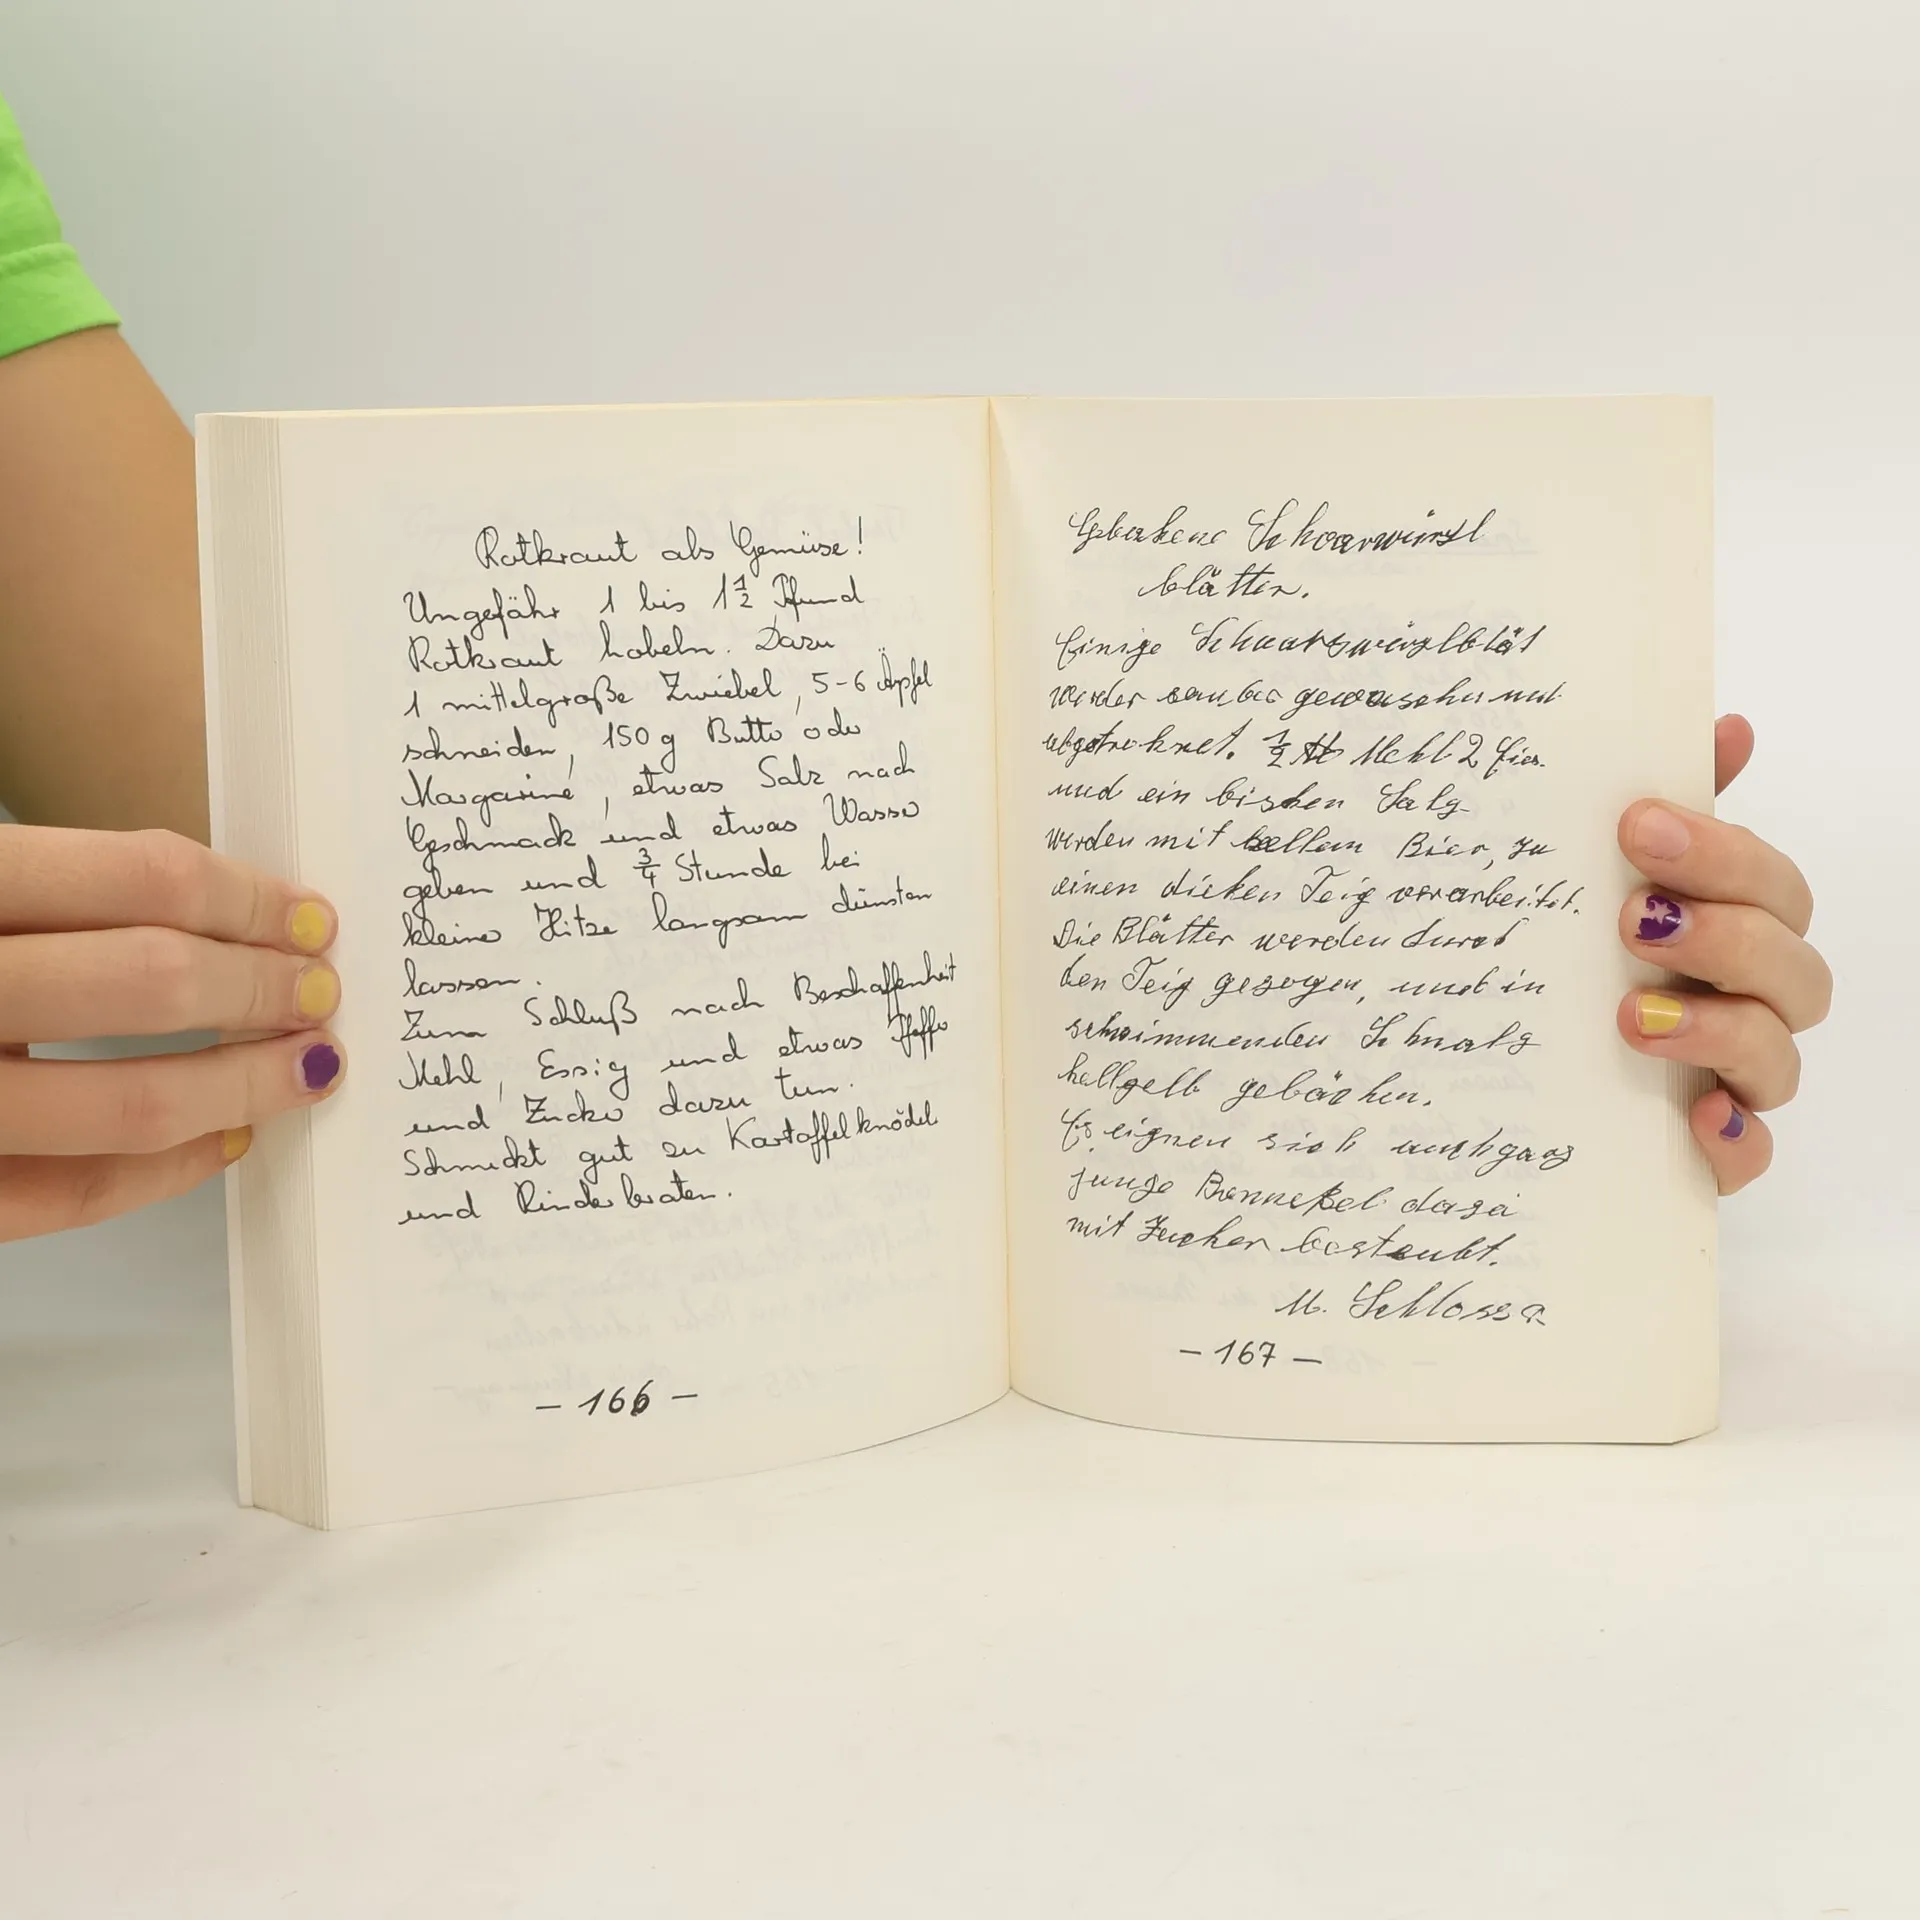 Rotkraut als Gemüse!
Ungefähr 1 bis 1 1/2 Pfund
Rotkraut hobeln. Dazu
1 mittelgroße Zwiebel, 5-6 Äpfel
schneiden, 150 g Butter oder
Margarine, etwas Salz nach
Geschmack und etwas Wasser
geben und 3/4 Stunde bei
kleiner Hitze langsam dünsten
lassen.
Zum Schluß nach Beschaffenheit
Mehl, Essig und etwas Pfeffer
und Zucker dazu tun.
Schmeckt gut zu Kartoffelknödel
und Rinderbraten.
- 166 -
blätter.
Einige
sauber gewaschen und
abgetroknet. 1/2 Mehl 2 Eier
und ein bischen Salz
werden mit hellem Bier, zu
einen dicken Teig verarbeitet.
Die Blätter werden durch
den Teig gezogen, und in
schwimmenden Schmalz
hellgelb gebäcken.
Es eignen sich auch ganz
junge
mit Zucker bestaubt.
M. Schlosser
- 167 -